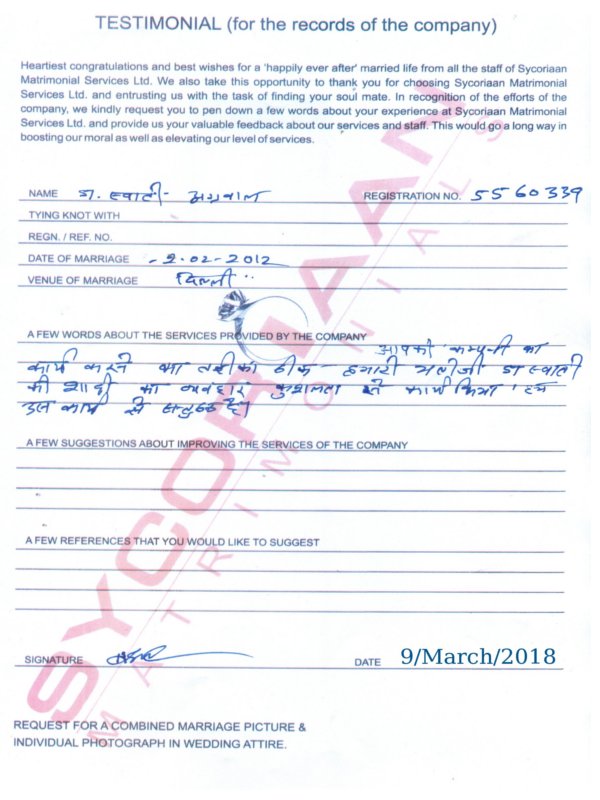 TESTIMONIAL (for the records of the company)
Heartiest congratulations and best wishes for a 'happily ever after' married life from all the staff of Sycoriaan
Matrimonial Services Ltd. We also take this opportunity to thank you for choosing Sycoriaan Matrimonial
Services Ltd. and entrusting us with the task of finding your soul mate. In recognition of the efforts of the
company, we kindly request you to pen down a few words about your experience at Sycoriaan Matrimonial
Services Ltd. and provide us your valuable feedback about our services and staff. This would go a long way in
boosting our moral as well as elevating our level of services.
NAME डा. स्वाती- अग्रवाल REGISTRATION NO. 5560339
TYING KNOT WITH
REGN. / REF. NO.
DATE OF MARRIAGE -2.02-2012
VENUE OF MARRIAGE दिल्ली
A FEW WORDS ABOUT THE SERVICES PROVIDED BY THE COMPANY
आपकी कम्पनी का
कार्य करने का तरीका ठीक हमारी भतीजी डा स्वाती
की शादी का व्यवहार कुशलता से कार्य किया हम
इस कार्य से सन्तुष्ट है।
A FEW SUGGESTIONS ABOUT IMPROVING THE SERVICES OF THE COMPANY
A FEW REFERENCES THAT YOU WOULD LIKE TO SUGGEST
SIGNATURE DATE 9/March/2018
REQUEST FOR A COMBINED MARRIAGE PICTURE &
INDIVIDUAL PHOTOGRAPH IN WEDDING ATTIRE.
SYCORIAAN
MATRIMONIALS